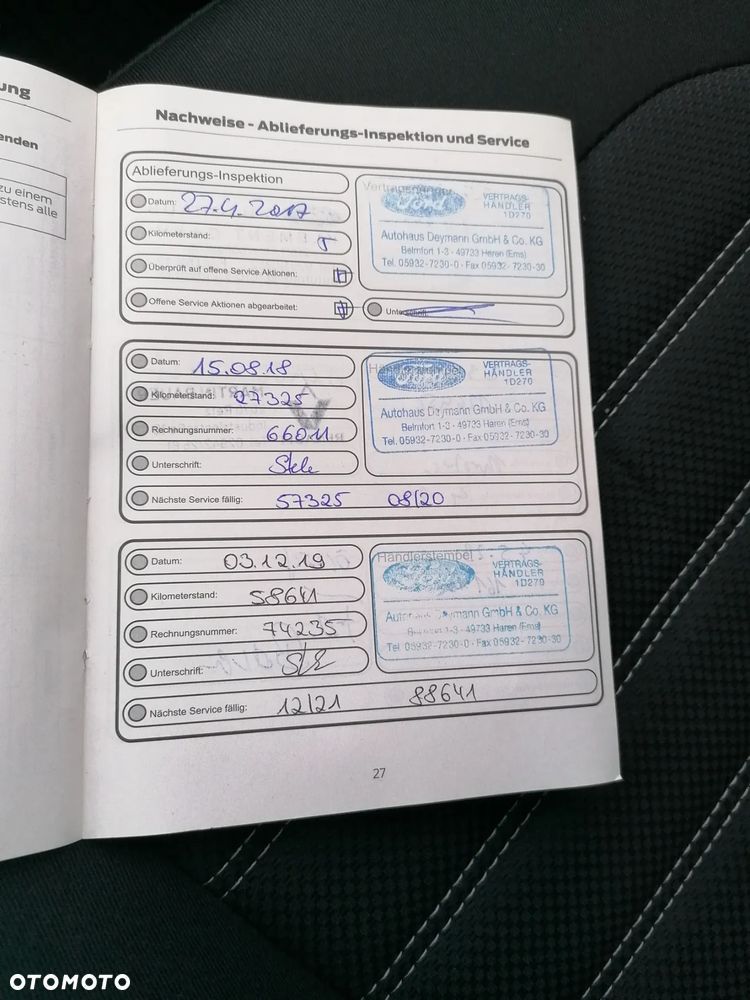 ung
enden
zu einem
stens alle
Nachweise - Ablieferungs-Inspektion und Service
Ablieferungs-Inspektion
Datum: 27.4.2017
Kilometerstand: 5
Überprüft auf offene Service Aktionen:
Offene Service Aktionen abgearbeitet:
Ford
VERTRAGS-
HÄNDLER
1D270
Autohaus Deymann GmbH & Co. KG
Belmfort 1-3 - 49733 Haren (Ems)
Tel. 05932-7230-0 · Fax 05932-7230-30
Datum: 15.08.18
Kilometerstand: 27325
Rechnungsnummer: 66011
Unterschrift:
Nächste Service fällig: 57325 08/20
VERTRAGS-
HÄNDLER
1D270
Autohaus Deymann GmbH & Co. KG
Belmfort 1-3 - 49733 Haren (Ems)
Tel. 05932-7230-0 · Fax 05932-7230-30
Datum: 03.12.19
Kilometerstand: 58641
Rechnungsnummer: 74235
Unterschrift:
Nächste Service fällig: 12/21 88641
Händlerstempel
VERTRAGS-
HÄNDLER
1D270
Deymann GmbH & Co. KG
1-3 - 49733 Haren (Ems)
Tel 05932-7230-0 · Fax 05932-7230-30
27
OTOMOTO